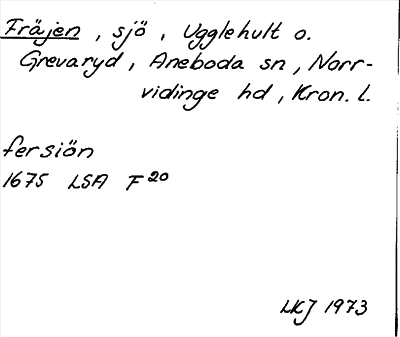 Fräjen , sjö , Ugglehult o.
Grevaryd , Aneboda sn , Norr-
vidinge hd , Kron. l.
fersiön
1675 LSA F 20
LKJ 1973